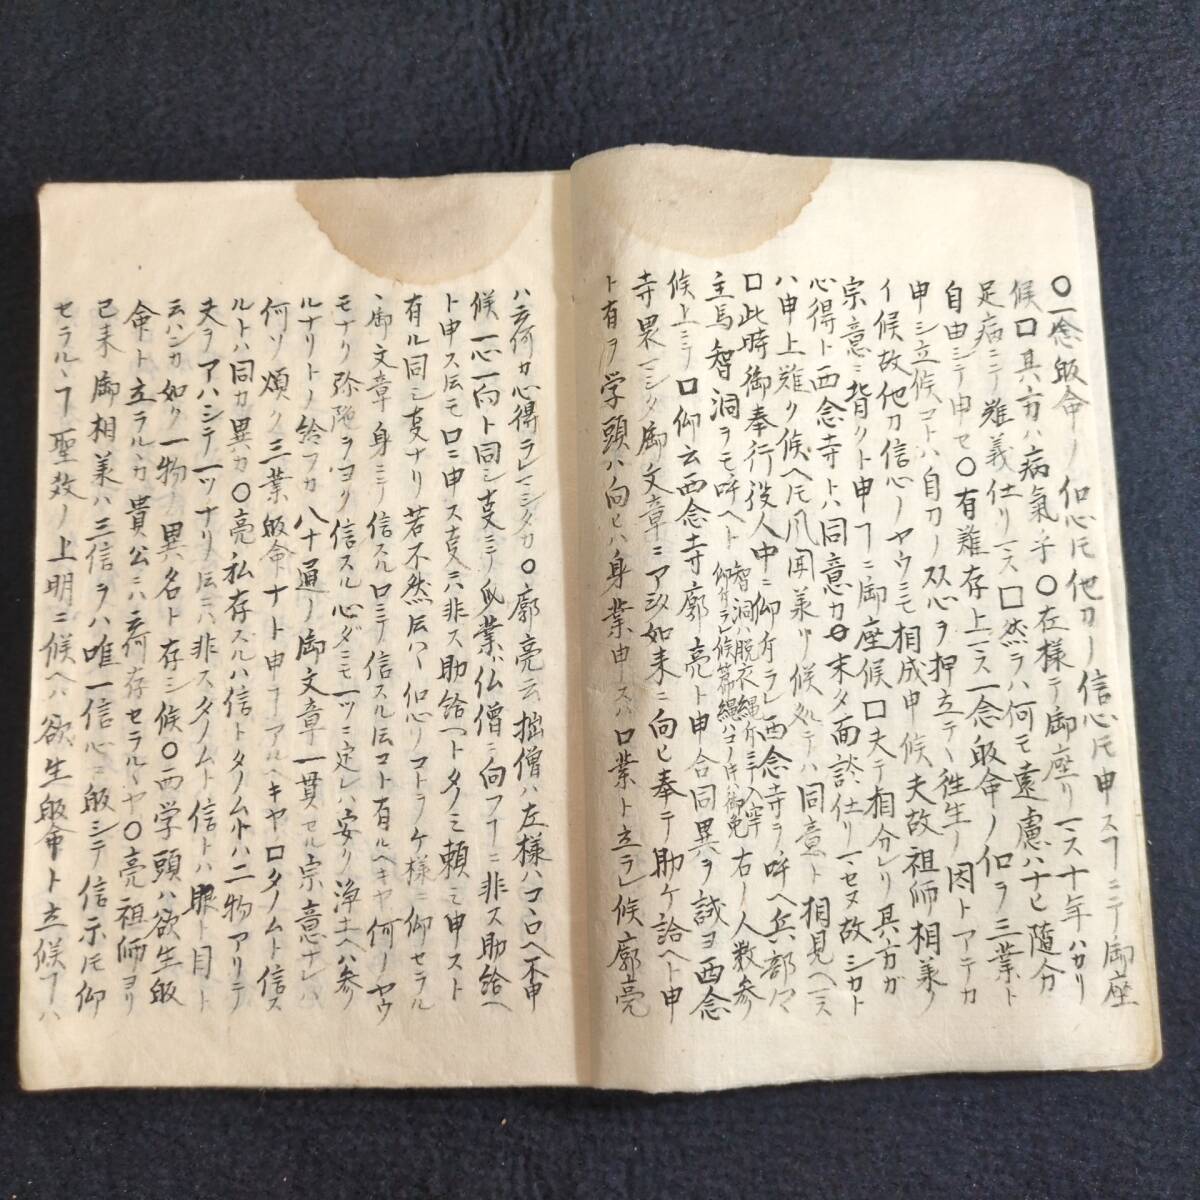 〇一念皈命ノ仰心ニ𪜈他力ノ信心𪜈申スヿニテ御座
候口其方ハ病氣乎〇左様テ御座リマス十年ハカリ
足病ニテ難義仕リマス口然ラハ何モ遠慮ハナヒ随分
自由ニシテ申セ〇有難存上マス一念皈命ノ仰ヲ三業ト
申シ立候コトハ自力ノ双心ヲ押立テ往生ノ因トアテカ
イ候故他力信心ノヤウニモ相成申候夫故祖師相羕ノ
宗意ニ背クト申ヿニ御座候口夫テ相分レリ其方ガ
心得ト西念寺トハ同意カ〇末タ面談仕リマセヌ故シカト
ハ申上難ク候ヘ𪜈風聞羕リ候処テハ同意ト相見ヘマス
口此時御奉行役人中ニ仰付ラレ西念寺ヲ呼ヘ兵部
主馬智洞ヲモ呼ヘト 智洞ハ脱衣縄付ニテ入牢 仰付ラレ候 縄ハコノ時ハ御免 右ノ人数参
候上ニテ口仰云西念寺廓亮ト申合同異ヲ試ヨ西念
寺畏マシタ御文章ニアミタ如来ニ向ヒ奉テ助ケ給ヘト申
ト有ヲ学頭ハ向ヒハ身業申スハ口業ト立ラレ候廓亮
ハ云何カ心得ラレマシタカ〇廓亮云拙僧ハ左様ハコロヘ不申
候一心一向ト同シ支ニテ身業ハ仏僧ニ向フヿニ非ス助給ヘ
ト申ス𪜈モ口ニ申ス支ニハ非ス助給ヘトタノミ頼ミ申スト
有ル同シ支ナリ若不然𪜈ハ仰心リコトラケ様ニ仰セラル
御文章身ニテ信スル口ニテ信スル𪜈コト有ルヘキヤ何ノヤウ
モナリ弥陀ヲヨク信スル心ダニモ一ツニ定レハ安リ浄土ヘハ参
ルナリトノ給フカ八十通ノ御文章一貫セル宗意ナレハ
何ソ煩ク三業皈命ナト申ヿアルヘキヤ口タノムト信ス
ルトハ同カ異カ〇亮私存ズルハ信トタノムトハ二物アリテ
夫ヲアハシテ一ツナリ𪜈ニハ非スタノムト信トハ眼ト目ト
云ハンカ如ク一物ノ異名ト存シ候〇西学頭ハ欲生皈
命ト立ラルカ貴公ニハ云何存セラルヤ〇亮祖師ヨリ
已来御相羕ハ三信ヲハ唯一信心ニ皈シテ信示𪜈仰
セラルヿ聖教ノ上明ニ候ヘハ欲生皈命ト立候ヿハ